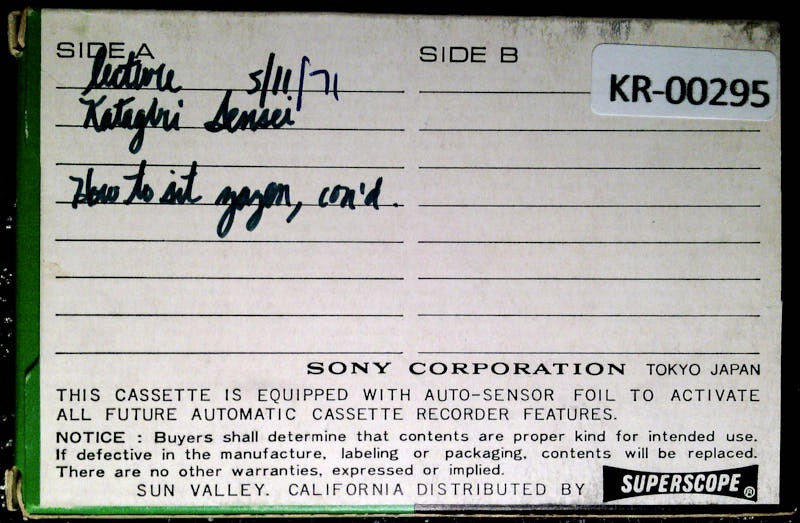 SIDE A
SIDE B
KR-00295
lecture 5/11/71
Katagiri Sensei
How to sit zazen, con'd.
SONY CORPORATION TOKYO JAPAN
THIS CASSETTE IS EQUIPPED WITH AUTO-SENSOR FOIL TO ACTIVATE
ALL FUTURE AUTOMATIC CASSETTE RECORDER FEATURES.
NOTICE : Buyers shall determine that contents are proper kind for intended use.
If defective in the manufacture, labeling or packaging, contents will be replaced.
There are no other warranties, expressed or implied.
SUN VALLEY. CALIFORNIA DISTRIBUTED BY SUPERSCOPE®